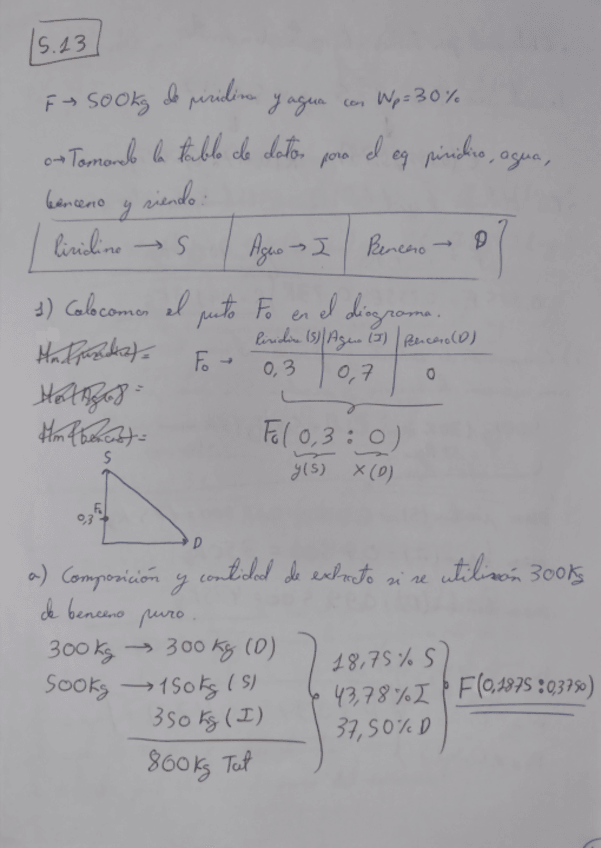 5.13
F → 500Kg de piridina y agua con Wp = 30%
o→ Tomando la tabla de datos para el eq piridina, agua,
benceno y siendo:
Piridina → S | Agua → I | Benceno → D
1) Colocamos el punto F₀ en el diagrama.
Piridina (S) | Agua (I) | Benceno (D)
F₀ → 0,3 | 0,7 | 0
Hm (piridina) =
Hm (Agua) =
Hm (benceno) =
F₀ (0,3 : 0)
y(S) x(D)
S
0,3 F₀
D
a) Composición y cantidad de extracto si se utilizan 300Kg
de benceno puro.
300 Kg → 300 Kg (D)
500Kg → 150 Kg (S)
350 Kg (I)
800 Kg Tot
18,75% S
43,78% I
37,50% D
F(0,1875 : 0,3750)